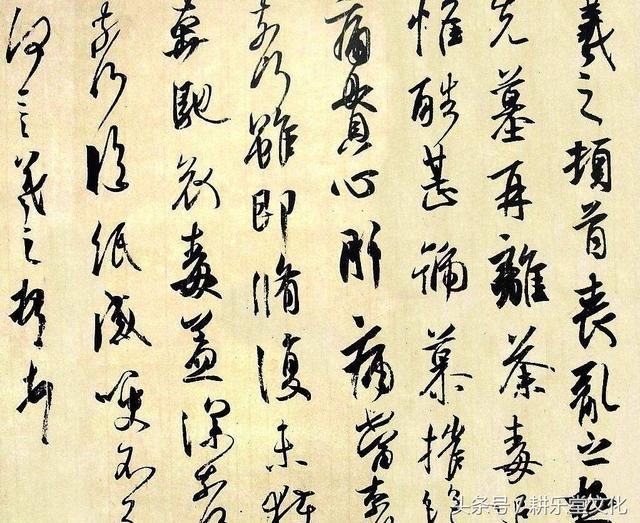 羲之頓首喪亂之極
先墓再離荼毒追
惟酷甚號慕摧絕
痛貫心肝痛當奈
奈何雖即脩復未獲
奔馳哀毒益深奈何
奈何臨紙感哽不知
何言羲之頓首
头条号 / 耕乐堂文化